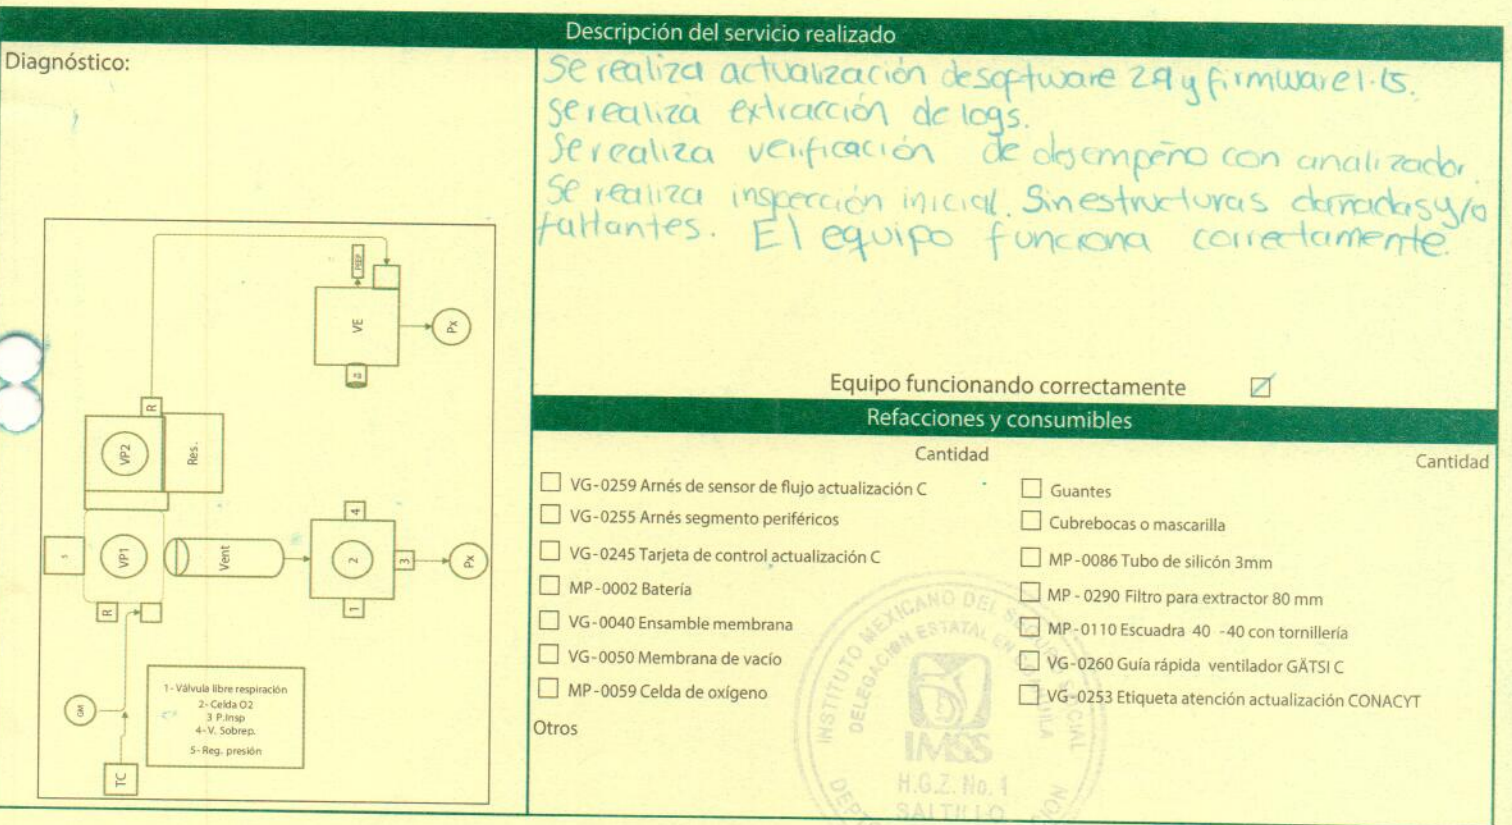 Descripción del servicio realizado
Diagnóstico:
Se realiza actualización de software 2.9 y firmware 1.15.
Se realiza extracción de logs.
Se realiza verificación de desempeño con analizador.
Se realiza inspección inicial. Sin estructuras dañadas y/o
faltantes. El equipo funciona correctamente.
PEEP
VE
Px
R
VP2
Res.
5
VP1
Vent
4
2
3
Px
1
R
GM
TC
1- Válvula libre respiración
2- Celda O2
3 P.Insp
4- V. Sobrep.
5- Reg. presión
Equipo funcionando correctamente
Refacciones y consumibles
Cantidad
Cantidad
VG-0259 Arnés de sensor de flujo actualización C
VG-0255 Arnés segmento periféricos
VG-0245 Tarjeta de control actualización C
MP-0002 Batería
VG-0040 Ensamble membrana
VG-0050 Membrana de vacío
MP-0059 Celda de oxígeno
Otros
Guantes
Cubrebocas o mascarilla
MP-0086 Tubo de silicón 3mm
MP - 0290 Filtro para extractor 80 mm
MP-0110 Escuadra 40 -40 con tornillería
VG-0260 Guía rápida ventilador GÄTSI C
VG-0253 Etiqueta atención actualización CONACYT
INSTITUTO MEXICANO DEL SEGURO SOCIAL
DELEGACION ESTATAL EN COAHUILA
IMSS
H.G.Z. No. 1
SALTILLO